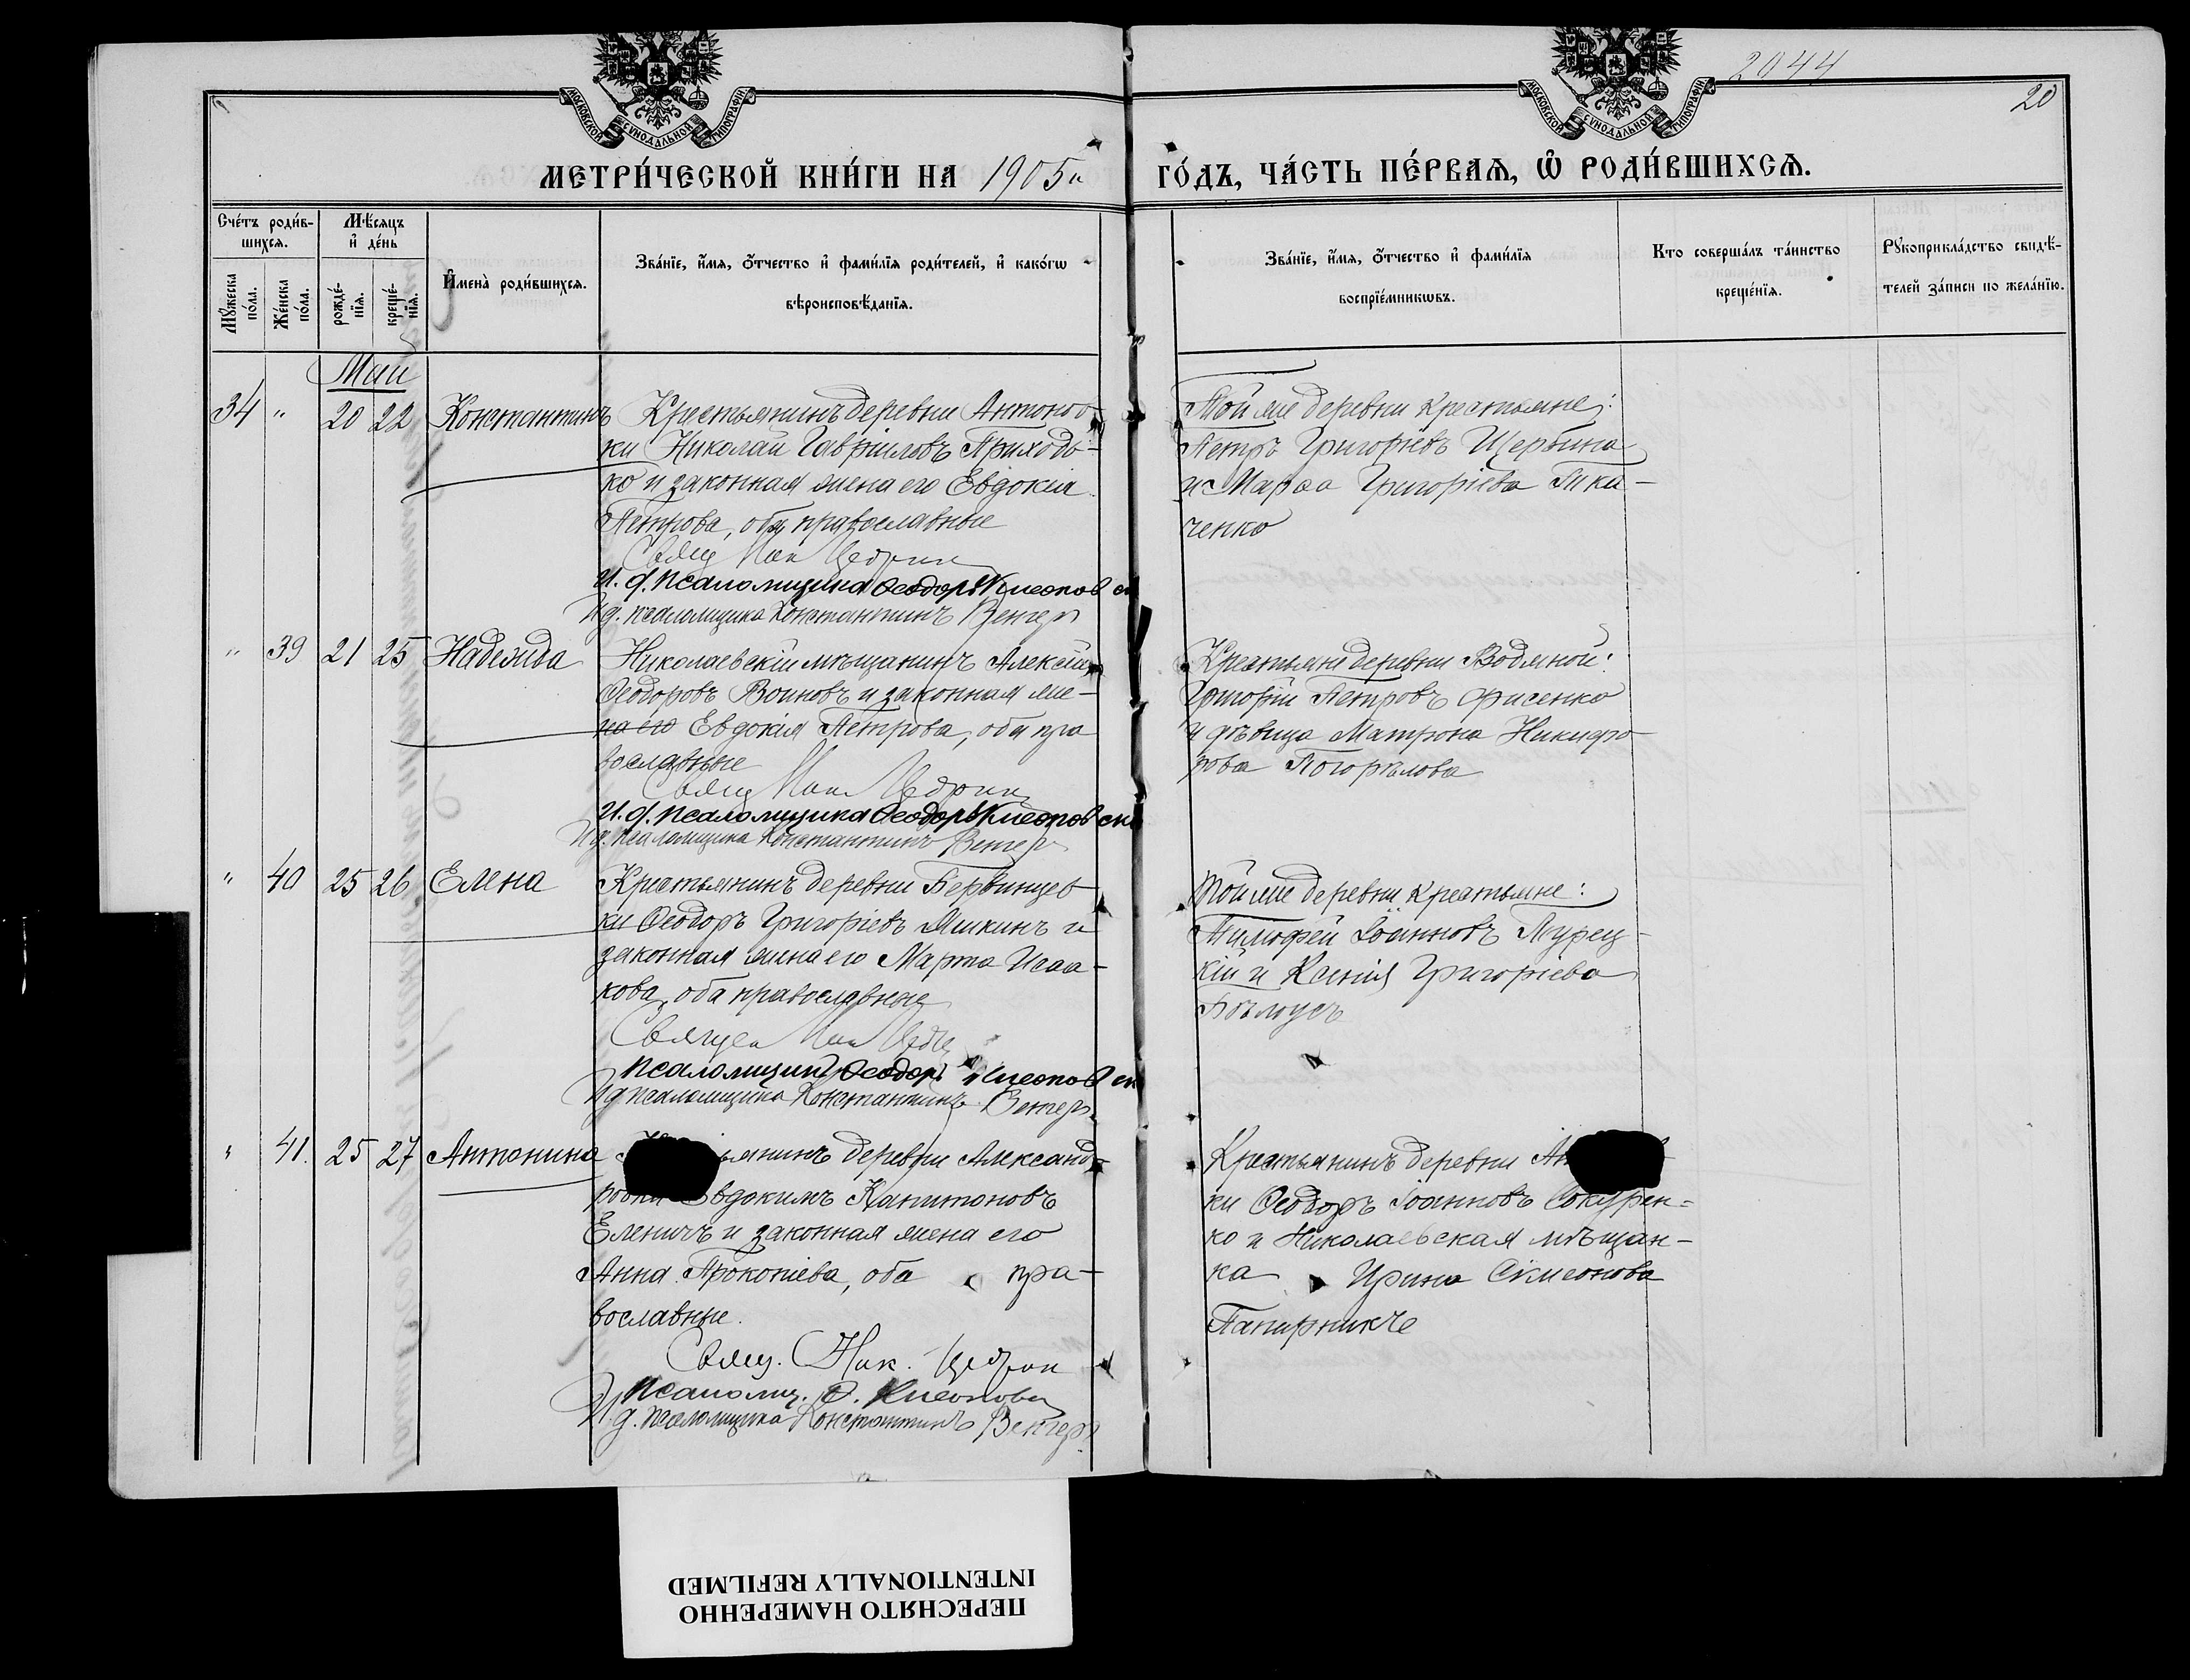 2044
20
МОСКОВСКОЙ СѴНОДАЛЬНОЙ ТИПОГРАФІИ
МОСКОВСКОЙ СѴНОДАЛЬНОЙ ТИПОГРАФІИ
МЕТРИ́ЧЕСКОЙ КНИ́ГИ НА 1905й ГО́ДЪ, ЧА́СТЬ ПЕ́РВАѦ, Ѡ҆ РОДИ́ВШИХСѦ.
Сче́тъ роди́в-
шихсѧ.
Мѣ́сѧцъ
и҆ де́нь
Мꙋ́жеска
по́ла.
Же́нска
по́ла.
рожде́-
нїѧ.
креще́-
нїѧ.
И҆мена̀ роди́вшихсѧ.
Зва́нїе, и҆́мѧ, ѻ҆́тчество и҆ фами́лїѧ роди́телей, и҆ како́гѡ
вѣроисповѣ́данїѧ.
Зва́нїе, и҆́мѧ, ѻ҆́тчество и҆ фами́лїѧ
воспрїе́мникѡвъ.
Кто̀ соверша́лъ та́инство
креще́нїѧ.
Рꙋкоприкла́дство свидѣ́-
телей за́писи по жела́нїю.
Май
34 " 20 22 Константинъ
Крестьянинъ деревни Антонов-
ки Николай Гавріиловъ Приходь-
ко и законная жена его Евдокія
Петрова, оба православные
Свящ Ник Цедрин
И. д. псаломщика Ѳеодоръ Клеопов
И д. псаломщика Константинъ Венгер
Той же деревни крестьяне:
Петръ Григорiевъ Щербина
и Марѳа Григоріева Тка-
ченко
" 39 21 25 Надежда
Николаевскій мѣщанинъ Алексій
Ѳеодоровъ Воиновъ и законная же-
на его Евдокія Петрова, оба пра
вославные
Свящ Ник Цедрин
И. д. псаломщика Ѳеодоръ Клеопов
И д. псаломщика Константинъ Венгер
Крестьяне деревни Водяной:
Григорій Петровъ Фисенко
и дѣвица Матрона Никифо-
рова Погорѣлова
" 40 25 26 Елена
Крестьянинъ деревни Бервинцев
ки Ѳеодоръ Григоріевъ Яшкинъ и
законная жена его Марта Исаа-
кова, оба православные
Священ Ник Цедр
Псаломщикъ Ѳеодоръ Клеопов
И д псаломщика Константинъ Венгеръ
Той же деревни крестьяне:
Тимоѳей Іоанновъ Турец-
кій и Ксенія Григоріева
Бѣлоусъ
" 41. 25 27 Антонина
ьянинъ деревни Александ-
ровки Евдокимъ Капитоновъ
Еленичъ и законная жена его
Анна Прокопіева, оба пра-
вославные.
Свящ. Ник. Цедрин
Псаломщ. Ѳ. Клеоповъ
И. д. псаломщика Константинъ Венгеръ
Крестьянинъ деревни
ки Ѳеодоръ Іоанновъ Сокурен=
ко и Николаевская мѣщан-
ка Ирина Сімеонова
Папирникъ
ПЕРЕСНЯТО НАМЕРЕННО
INTENTIONALLY REFILMED